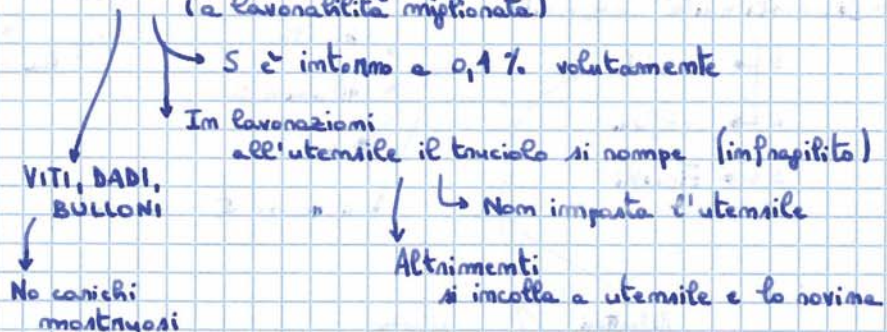 (a lavorabilità migliorata)
S è intorno a 0,1 % volutamente
In lavorazioni
all'utensile il truciolo si rompe (infragilito)
VITI, DADI,
BULLONI
" Non impasta l'utensile
Altrimenti
si incolla a utensile e lo rovina
No carichi
mostruosi